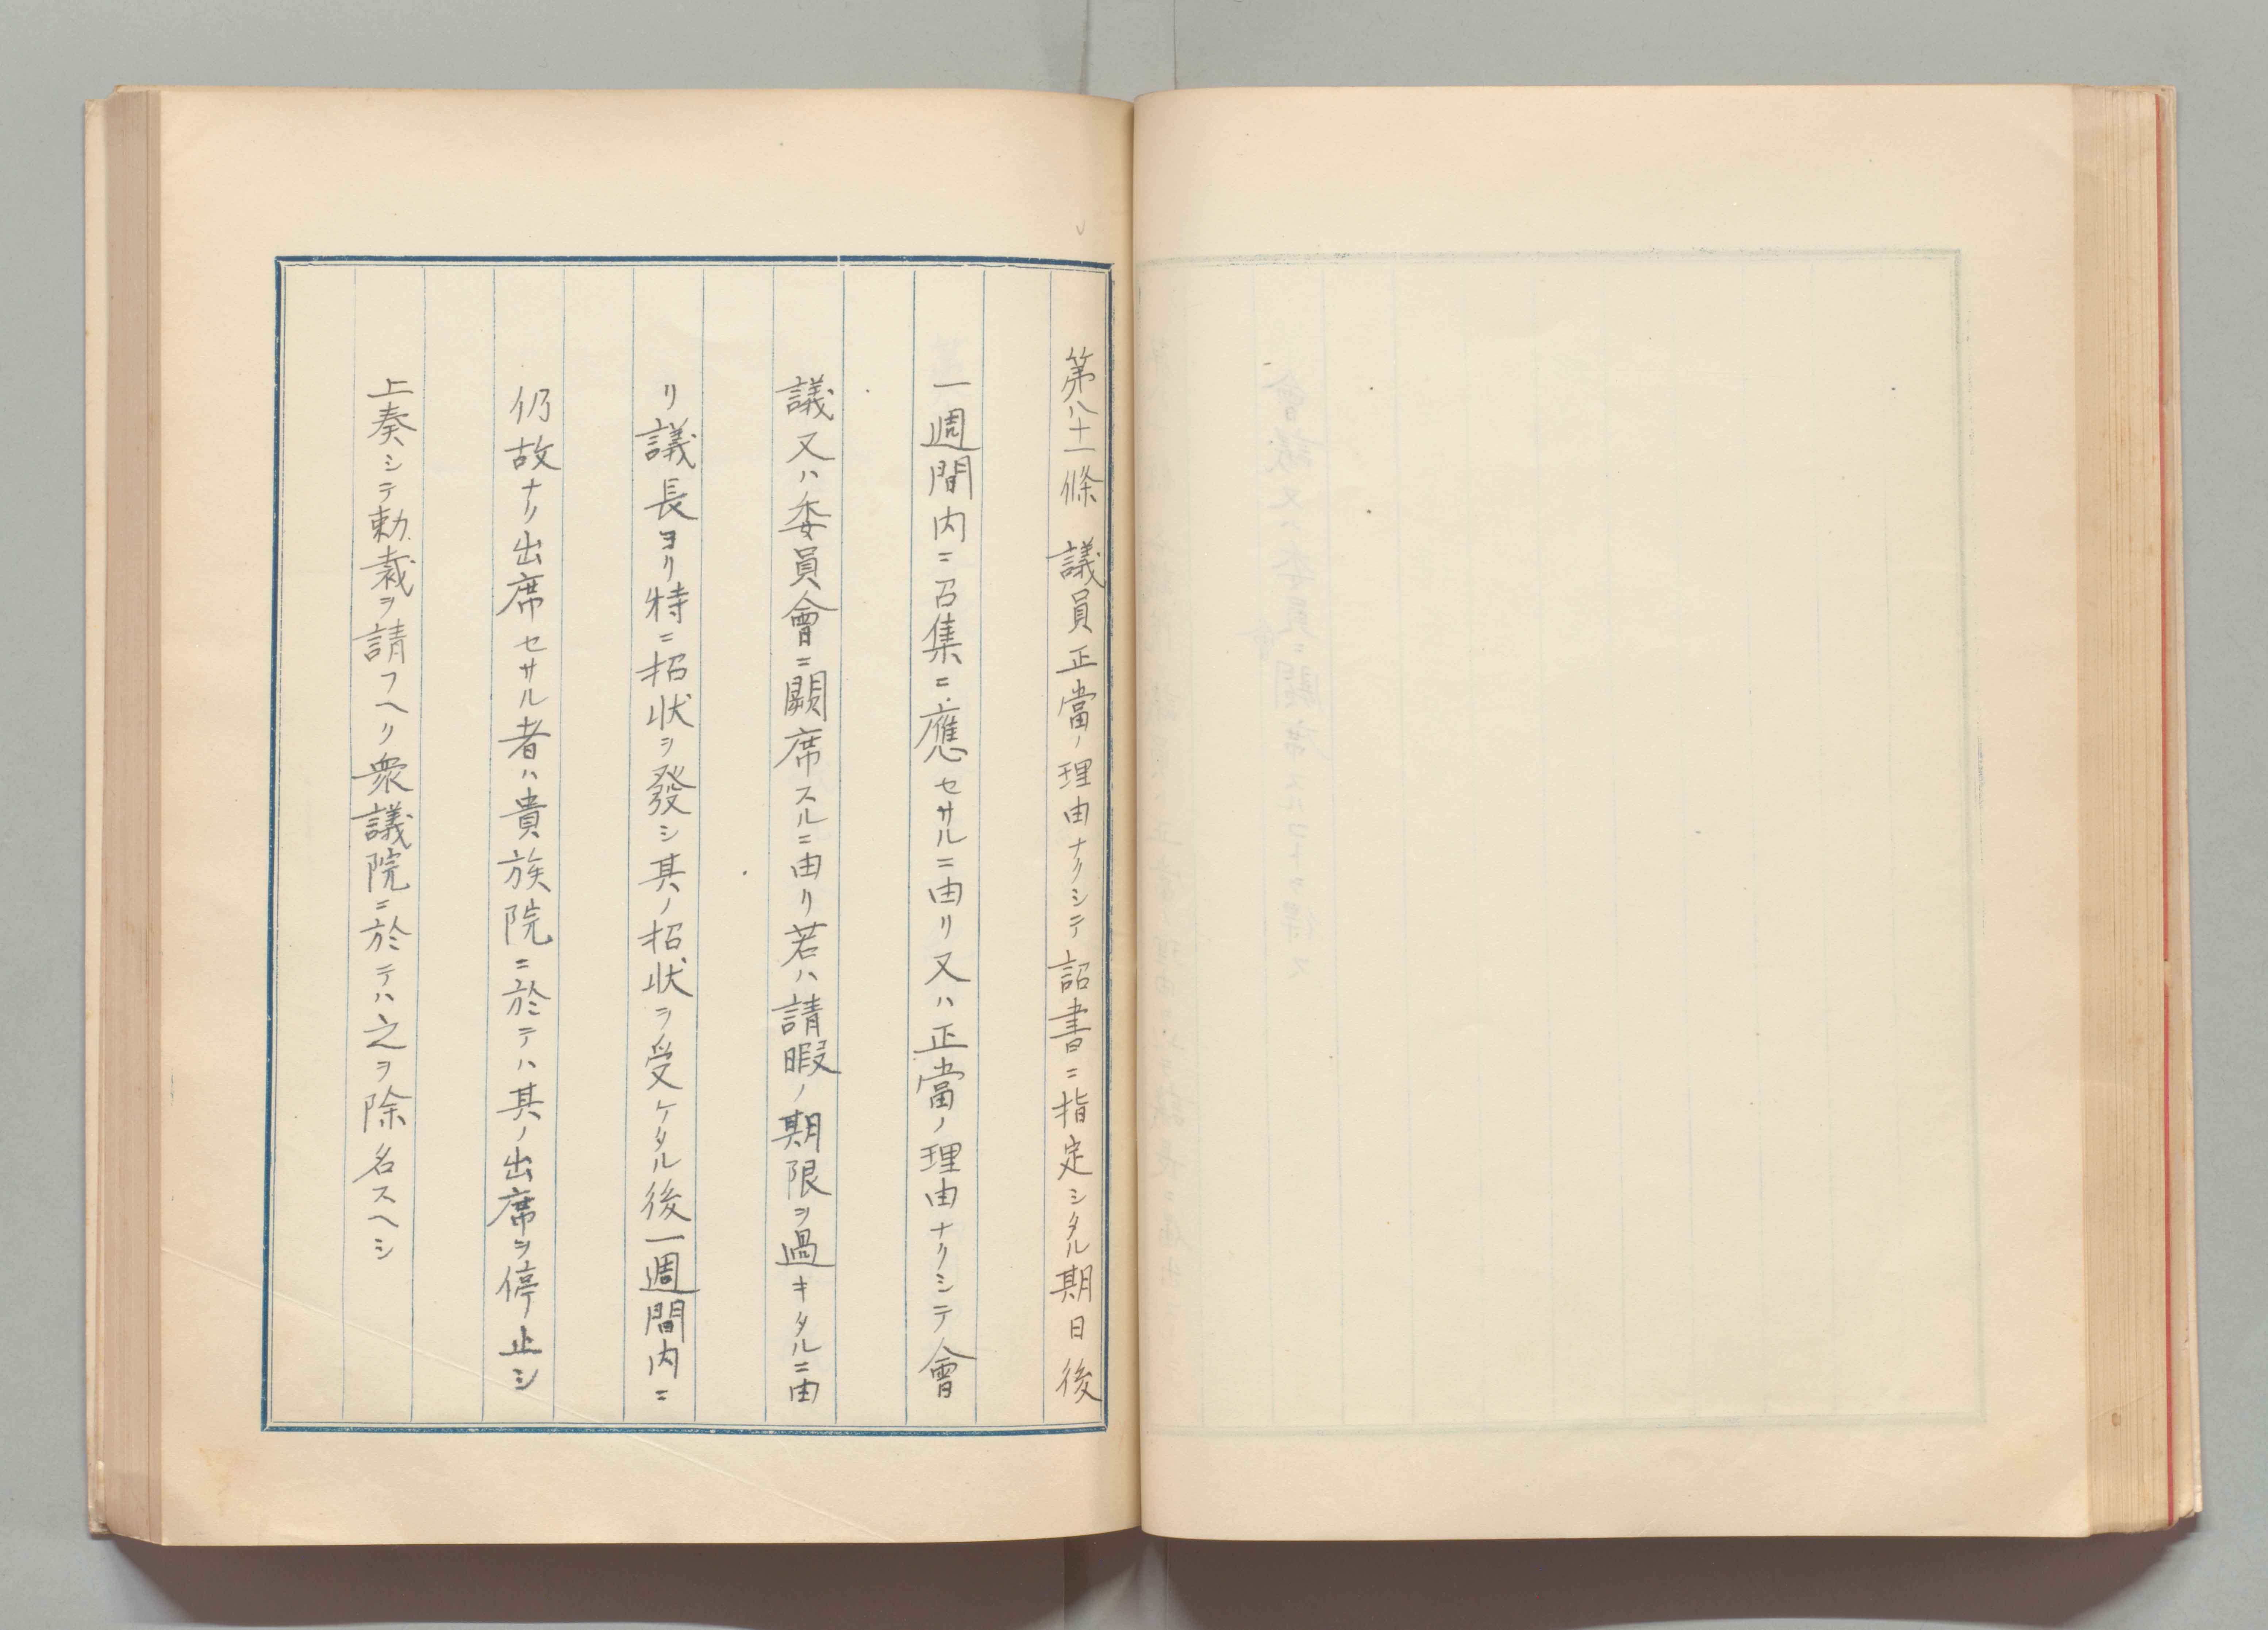 第八十一條　議員正當ノ理由ナクシテ詔書ニ指定シタル期日後
一週間內ニ召集ニ應セサルニ由リ又ハ正當ノ理由ナクシテ會
議又ハ委員會ニ闕席スルニ由リ若ハ請暇ノ期限ヲ過キタルニ由
リ議長ヨリ特ニ招狀ヲ發シ其ノ招狀ヲ受ケタル後一週間內ニ
仍故ナク出席セサル者ハ貴族院ニ於テハ其ノ出席ヲ停止シ
上奏シテ勅裁ヲ請フヘク衆議院ニ於テハ之ヲ除名スヘシ